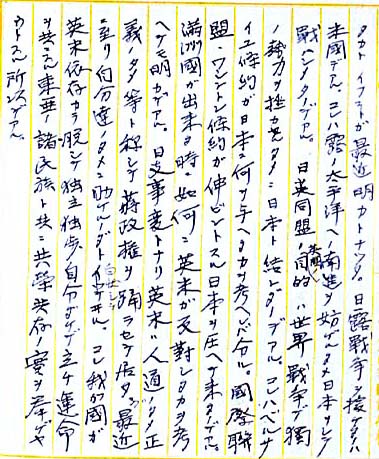 タカト イフコトガ最近明カトナツタ。日露戰爭ヲ援ケタノハ
米國デアル、コレハ露ノ太平洋ヘノ南進ヲ妨ゲルタメ日本ヲシテ
戰ハシメタノデアル。日英同盟ノ目的ハ世界戰爭デ獨
ノ勢力ヲ挫カンタメニ日本ト結ンダノデアル。コレハベルサ
イユ條約ガ日本ニ何ヲ与ヘタカヲ考ヘレバ分ル。國際聯
盟・ワシントン條約ガ伸ビントスル日本ヲ圧ヘテ来タノデアル。
滿洲國ガ出来タ時ニ如何ニ英米ガ反對シタカヲ考
ヘテモ明カデアル。日支事変トナリ英米ハ人道ノタメ正
義ノタメ等ト称シテ蒋政権ヲ踊ラセテ居タガ最近
ニ至リ自分達ノタメニ助ケルノダト自白シテヰル。コレ我ガ國ガ
英米依存カラ脱シテ独立独歩自分ダケデ立ツ運命
ヲ共ニスル東亜ノ諸民族ト共ニ共榮共存ノ實ヲ挙ゲ
カトスル所以デアル。